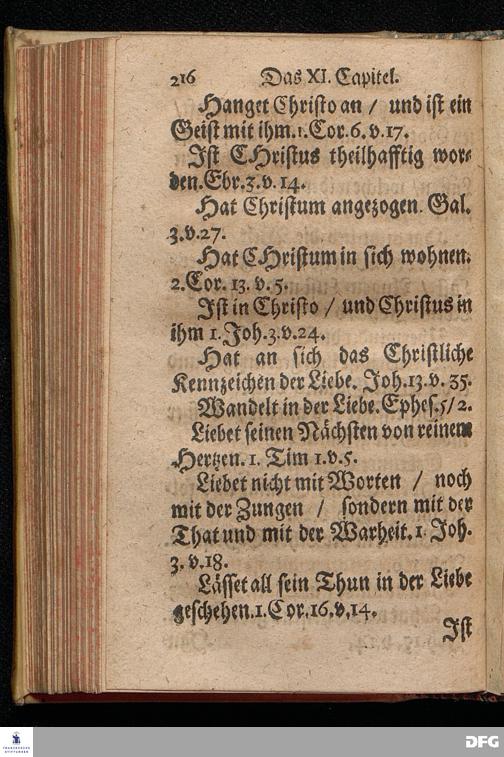 216 Das XI. Capitel.
Hanget Christo an / und ist ein
Geist mit ihm. 1. Cor. 6. v. 17.
Ist CHristus theilhafftig wor-
den. Ebr. 3. v. 14.
Hat Christum angezogen. Gal.
3. v. 27.
Hat CHristum in sich wohnen.
2. Cor. 13. v. 5.
Ist in Christo / und Christus in
ihm 1. Joh. 3. v. 24.
Hat an sich das Christliche
Kennzeichen der Liebe. Joh. 13. v. 35.
Wandelt in der Liebe. Ephes. 5 / 2.
Liebet seinen Nächsten von reinem
Hertzen. 1. Tim 1. v. 5.
Liebet nicht mit Worten / noch
mit der Zungen / sondern mit der
That und mit der Warheit. 1. Joh.
3. v. 18.
Lässet all sein Thun in der Liebe
geschehen. 1. Cor. 16. v. 14.
Ist
FRANCKESCHE
STIFTUNGEN
DFG